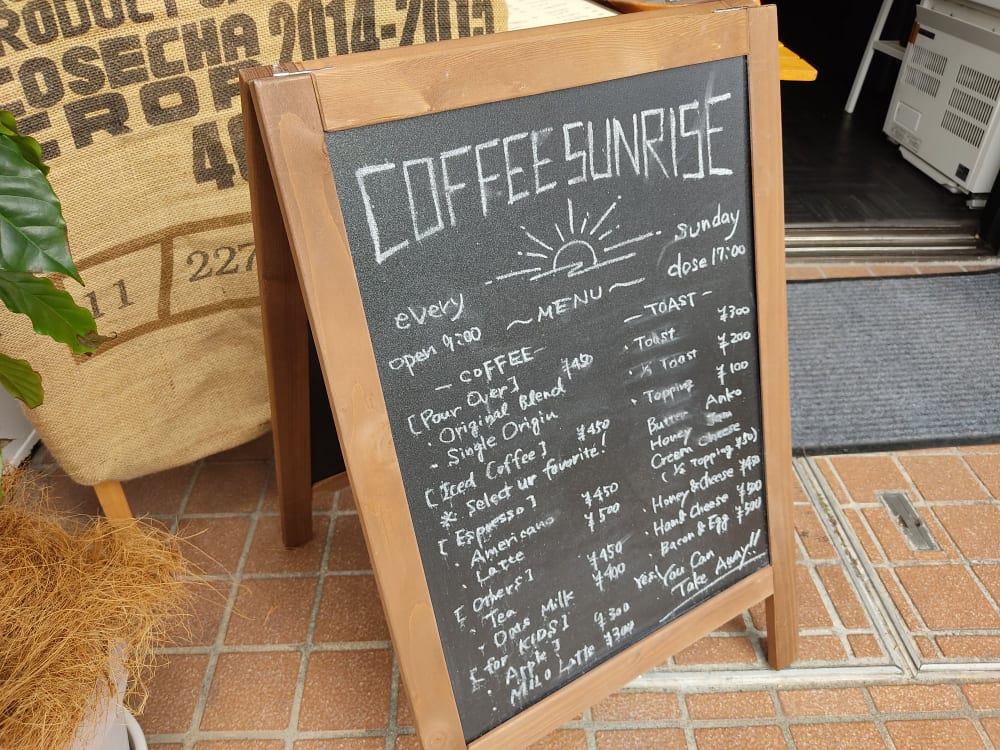 PRODUCT
COSECHA 2014-2015
227
11
COFFEE SUNRISE
every
open 9:00
sunday
close 17:00
~ MENU ~
- COFFEE -
[Pour Over]
· Original Blend
· Single Origin
[Iced Coffee] ¥450
※ Select ur favorite!
[Espresso]
· Americano ¥450
· Latte ¥500
[Others]
· Tea ¥450
· Oats Milk ¥400
[for KIDS]
· Apple ¥300
· MILO Latte ¥300
- TOAST -
· Toast ¥300
· ½ Toast ¥200
· Topping ¥100
Butter Anko
Honey Jam
Cream Cheese
(½ Topping ¥50)
· Honey & Cheese ¥450
· Ham & Cheese ¥500
· Bacon & Egg ¥500
Yes! You Can
Take Away!!